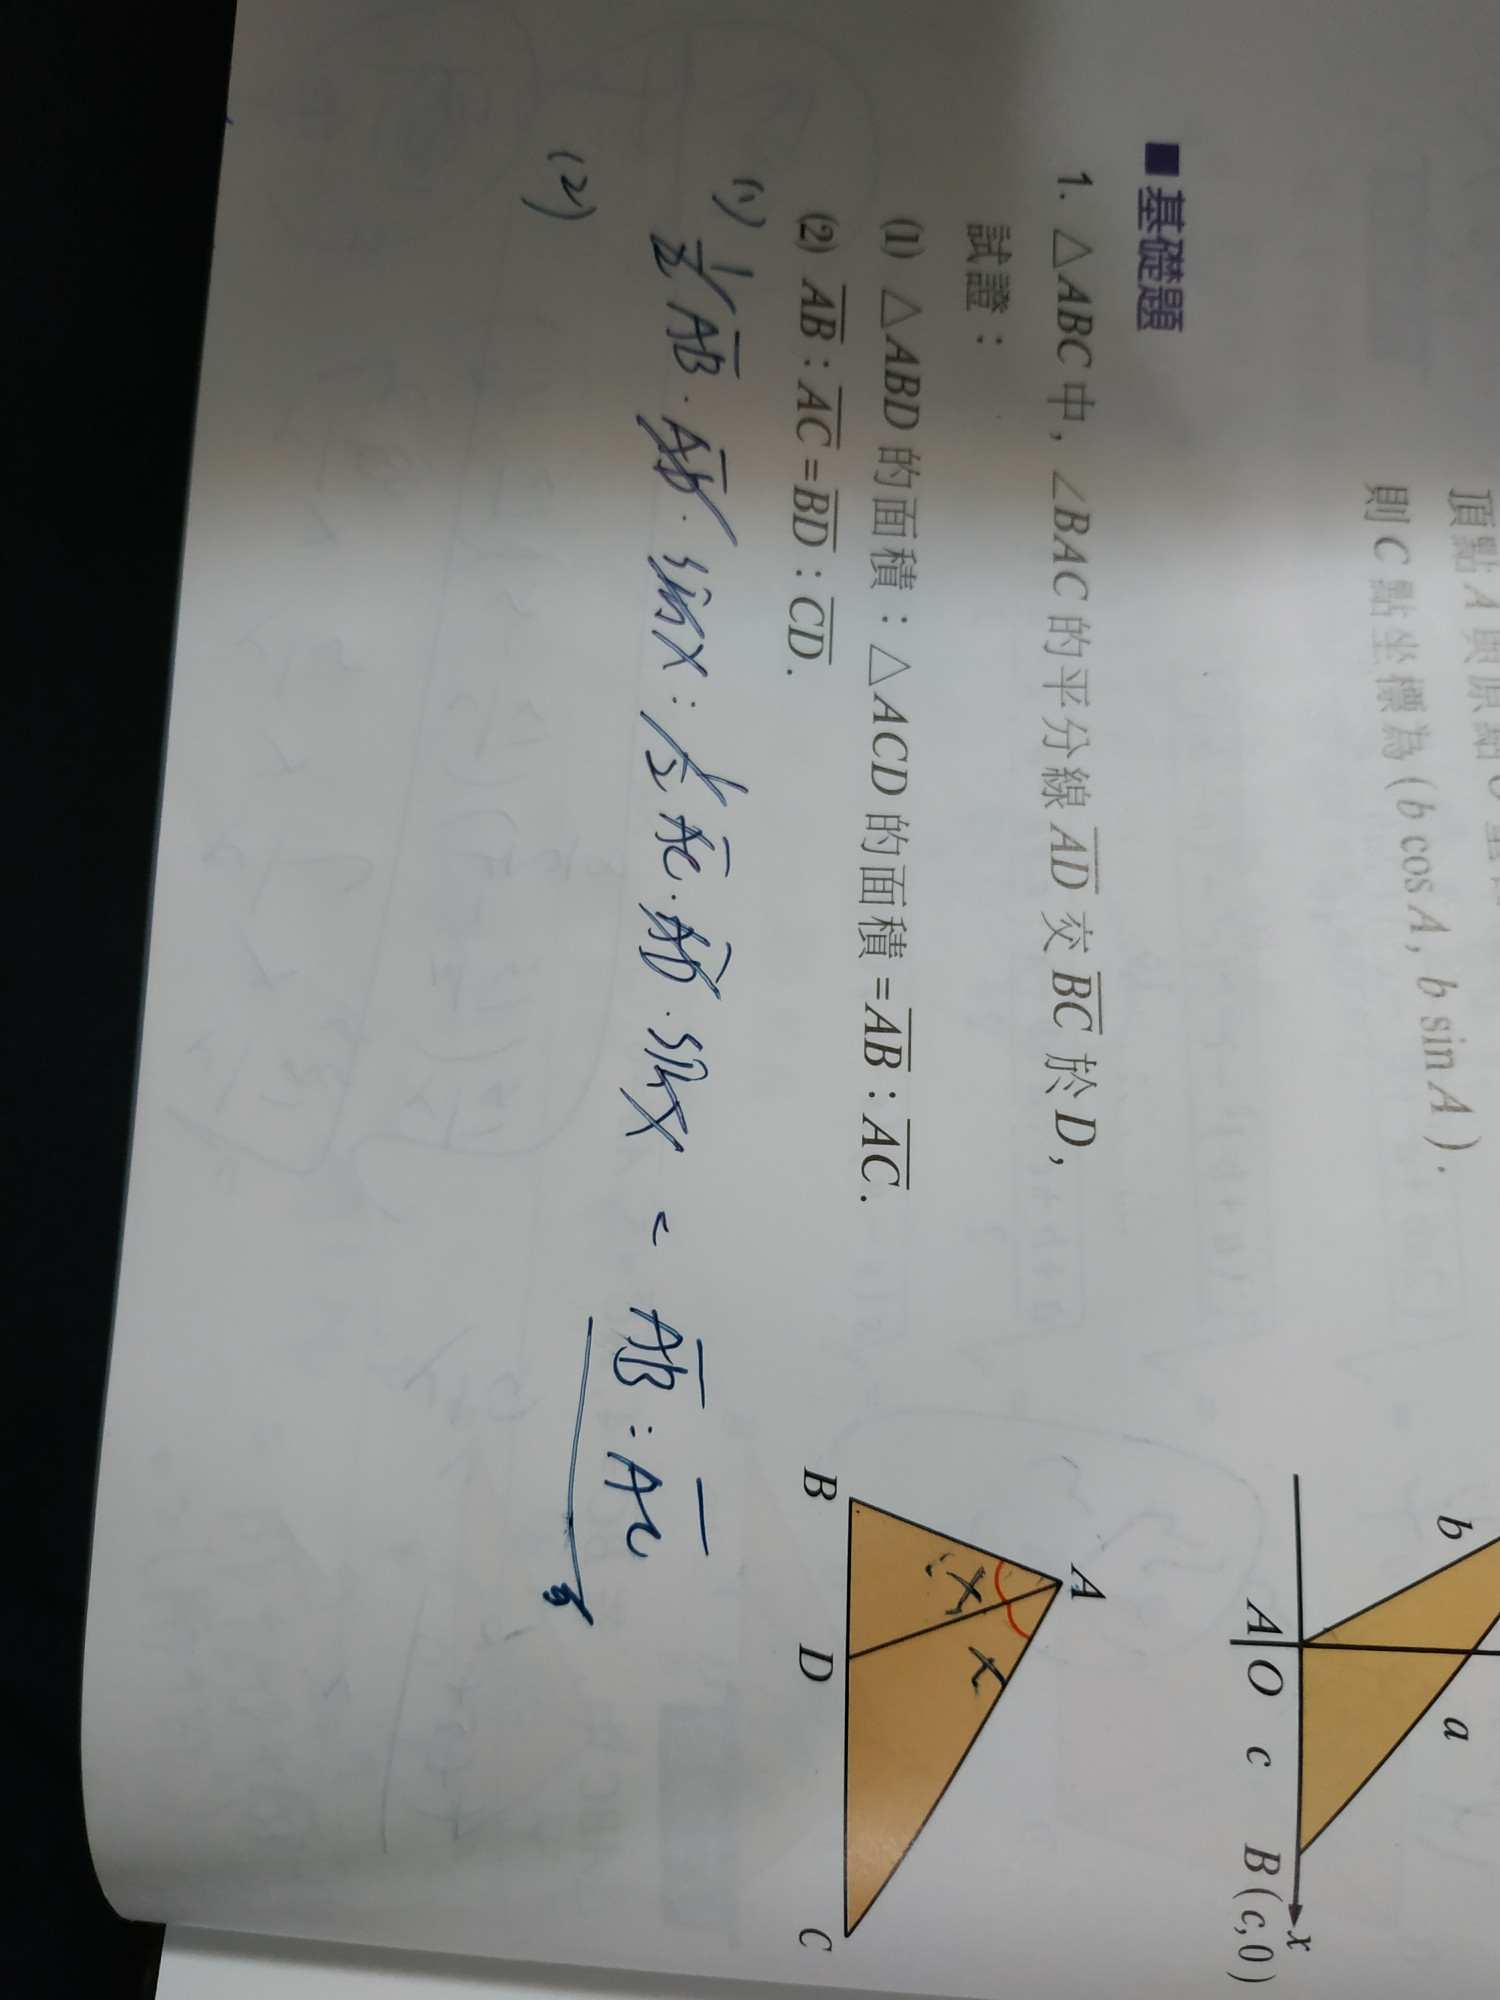 則 C 點坐標為 (b cos A, b sin A).
b
a
A
O
c
B(c,0)
x
■基礎題
1. △ABC 中, ∠BAC 的平分線 A̅D̅ 交 B̅C̅ 於 D,
試證：
(1) △ABD 的面積：△ACD 的面積 = A̅B̅ : A̅C̅.
(2) A̅B̅ : A̅C̅ = B̅D̅ : C̅D̅.
A
x
x
B
D
C
(1) 1/2 A̅B̅ · A̅D̅ · sin x : 1/2 A̅C̅ · A̅D̅ · sin x = A̅B̅ : A̅C̅
(2)